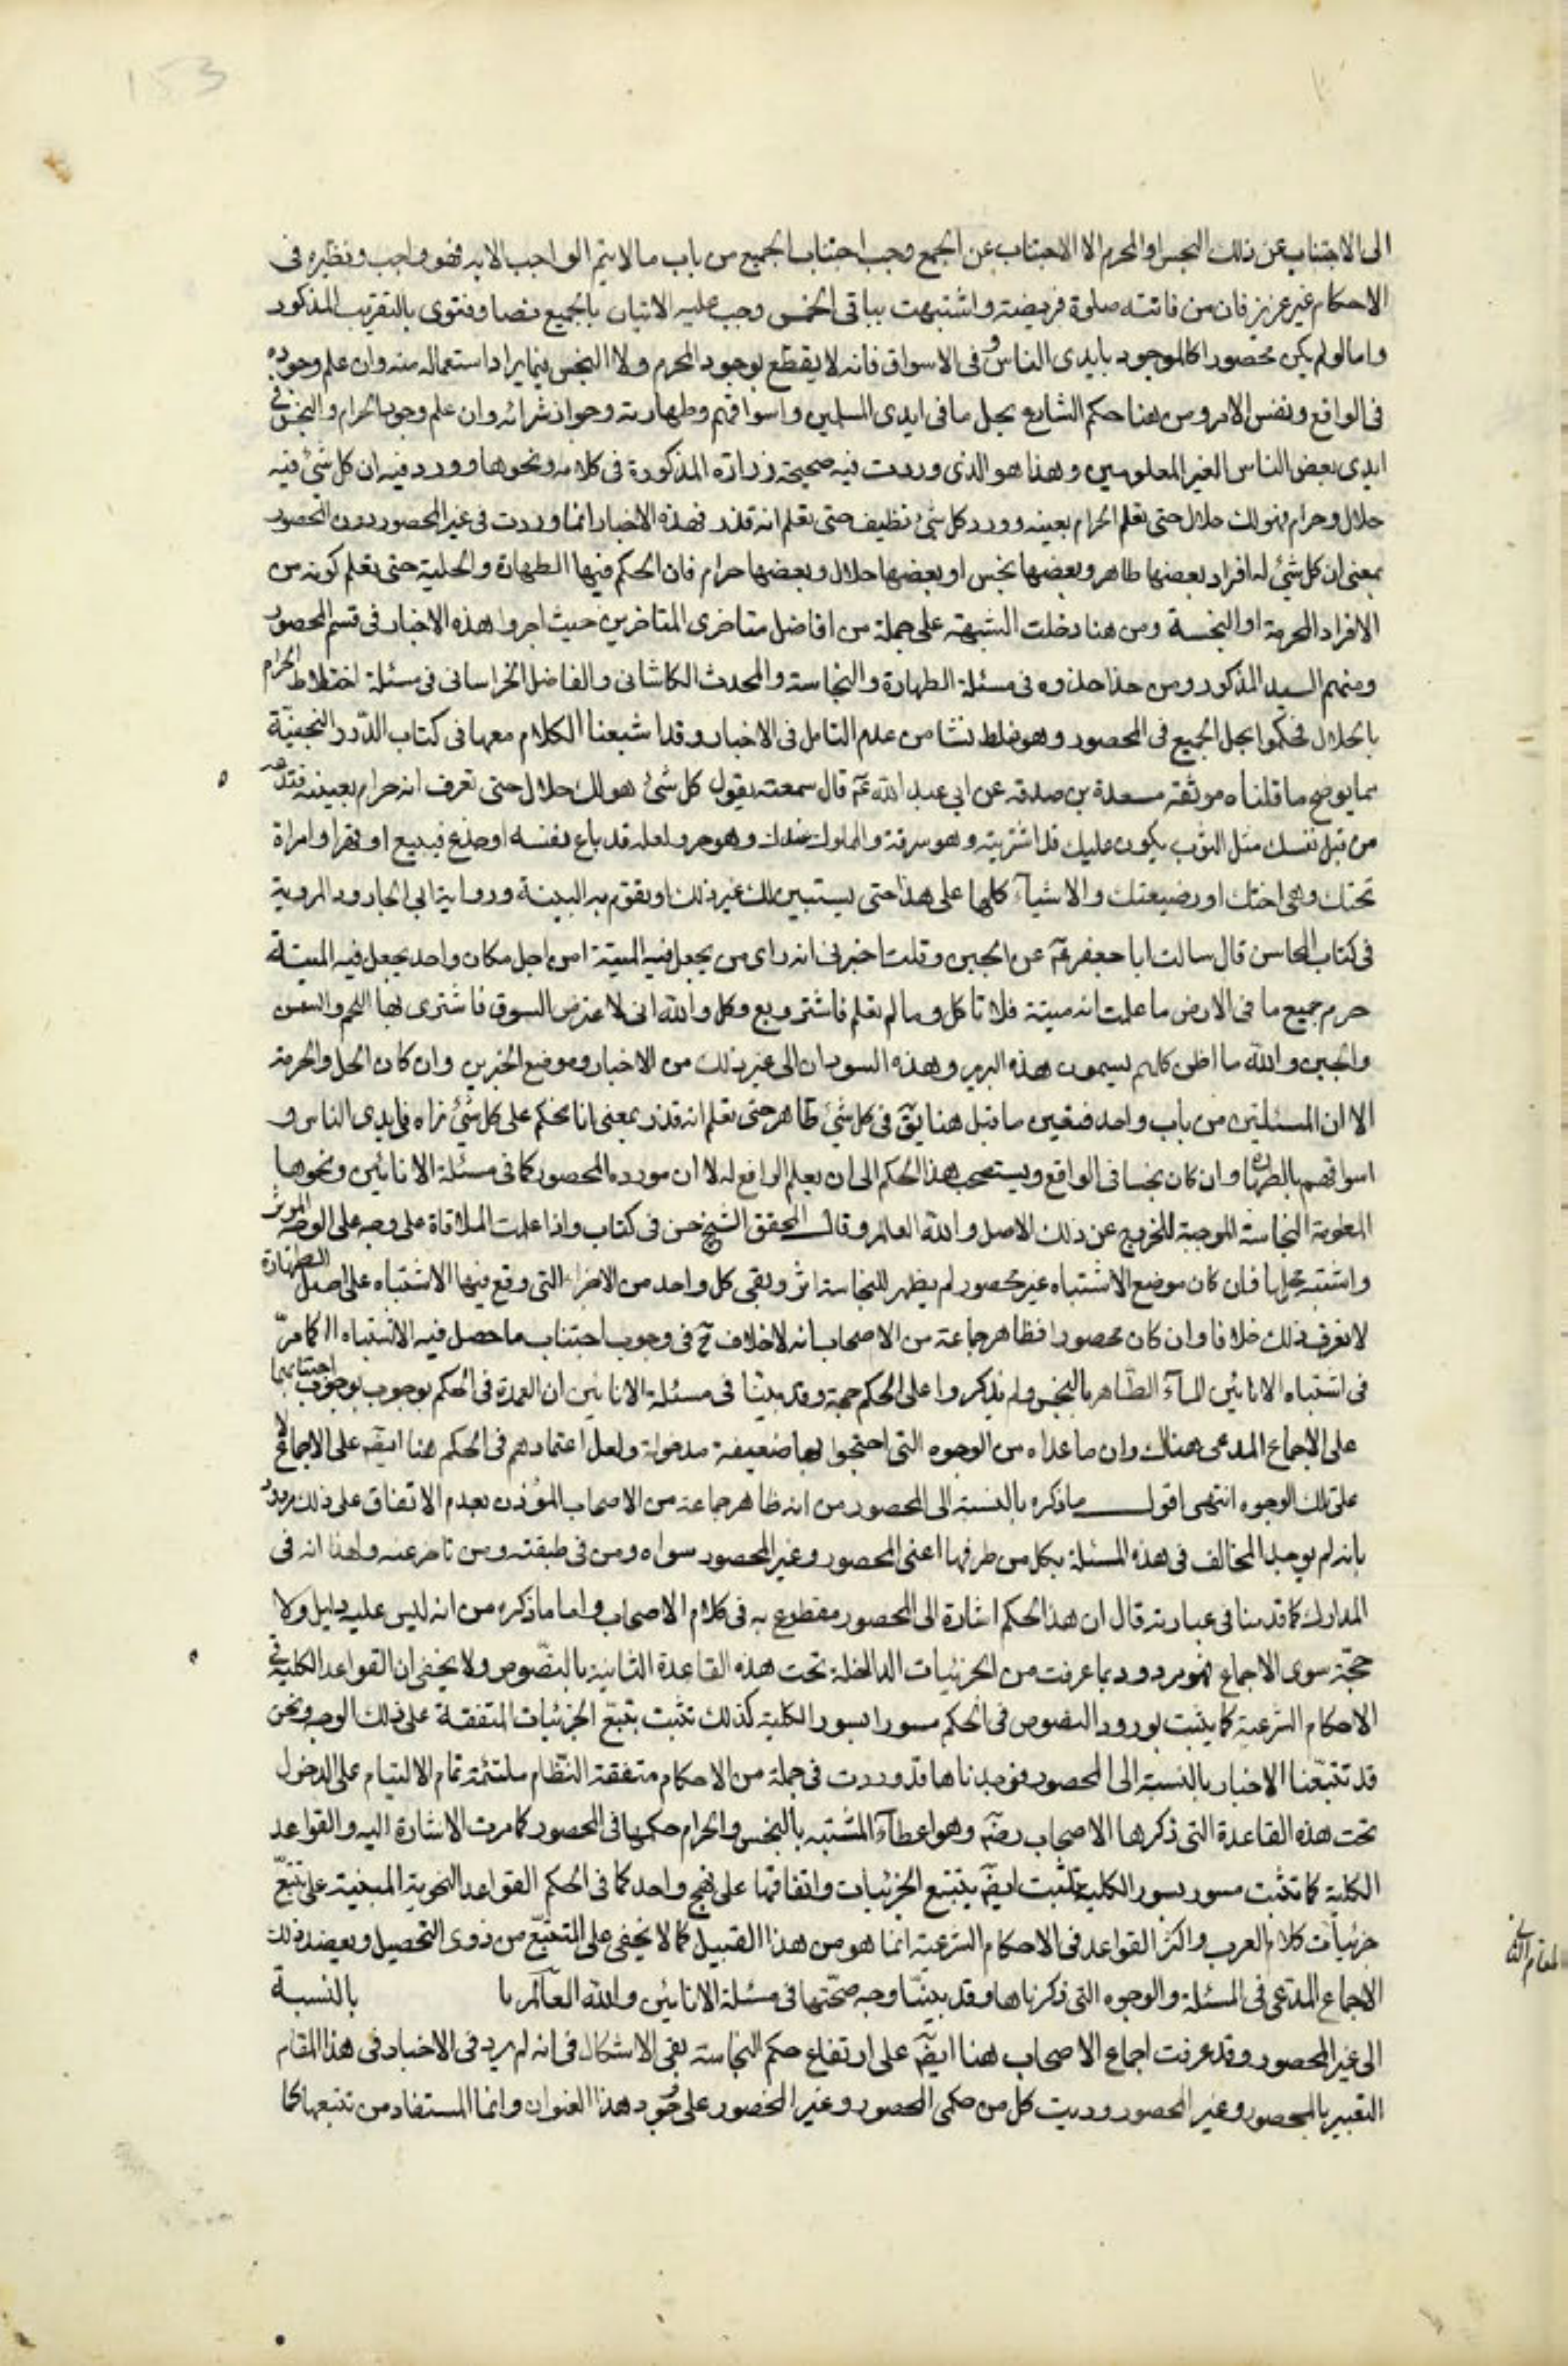 153
الى الاجتناب عن ذلك النجس او المحرم الا الاجتناب عن الجمع وجب اجتناب الجميع من باب ما لا يتم الواجب الا به فهو واجب ونظيره فى
الاحكام غير عزيز فان من فاتته صلوة فريضة واشتبهت بباقى الخمس وجب عليه الاتيان بالجميع نصا وفتوى بالتقريب المذكور
واما لو لم يكن محصورا كالموجود بايدى الناس و فى الاسواق فانه لا يقطع بوجود المحرم ولا النجس فيما يراد استعماله منه وان علم وجوده
فى الواقع ونفس الامر ومن هنا حكم الشارع بحل ما فى ايدى المسلمين واسواقهم وطهارته وجواز شرائه وان علم وجود الحرام والنجس فى
ايدى بعض الناس الغير المعلومين وهذا هو الذى وردت فيه صحيحة زرارة المذكورة فى كلامه ونحوها وورد فيه ان كل شئ فيه
حلال وحرام فهو لك حلال حتى تعلم الحرام بعينه وورد كل شئ نظيف حتى تعلم انه قذر فهذه الاخبار انما وردت فى غير المحصور دون المحصور
بمعنى ان كل شئ له افراد بعضها طاهر وبعضها نجس او بعضها حلال وبعضها حرام فان الحكم فيها الطهارة والحلية حتى تعلم كونه من
الافراد المحرمة او النجسة ومن هنا دخلت الشبهة على جملة من افاضل متاخرى المتاخرين حيث اجروا هذه الاخبار فى قسم المحصور
ومنهم السيد المذكور ومن حذا حذوه فى مسئلة الطهارة والنجاسة والمحدث الكاشانى والفاضل الخراسانى فى مسئلة اختلاط الحرام
بالحلال فحكموا بحل الجميع فى المحصور وهو غلط نشا من عدم التامل فى الاخبار وقد اشبعنا الكلام معها فى كتاب الدّرر النجفيّة
مما يوضح ما قلناه موثقة مسعدة بن صدقة عن ابى عبد الله عم قال سمعته يقول كل شئ هو لك حلال حتى تعرف انه حرام بعينه فتدعه
من قبل نفسك مثل الثوب يكون عليك قد اشتريته وهو سرقة والمملوك عندك وهو حر ولعله قد باع نفسه او خدع فبيع او قهر او امراة
تحتك وهى اختك او رضيعتك والاشيآء كلها على هذا حتى يستبين لك غير ذلك او يقوم به البينة ورواية ابى الجارود المروية
فى كتاب المحاسن قال سالت ابا جعفر عم عن الجبن وقلت اخبرنى انه راى من يجعل فيه الميتة امن اجل مكان واحد يجعل فيه الميتة
حرم جميع ما فى الارض ما علمت انه ميتة فلا تاكل وما لم تعلم فاشتر وبع وكل والله انى لاعترض السوق فاشترى بها اللحم والسمن
والجبن والله ما اظن كلهم يسمون هذه البربر وهذه السودان الى غير ذلك من الاخبار وموضع الخبرين وان كان الحل والحرمة
الا ان المسئلتين من باب واحد فتعين ما قبل هنا يق فى كل شئ طاهر حتى تعلم انه قذر بمعنى انا نحكم على كل شئ نراه فى ايدى الناس و
اسواقهم بالطهارة وان كان نجسا فى الواقع ويستصحب هذا الحكم الى ان يعلم الرافع له لا ان مورده المحصور كما فى مسئلة الانائين ونحوها
المعلومة النجاسة الموجبة للخروج عن ذلك الاصل والله العالم وقال المحقق الشيخ حسن فى كتاب واذا علمت الملاقاة على وجه على الوجه الموثر
واشتبه محلها فان كان موضع الاشتباه غير محصور لم يظهر للنجاسة اثر وبقى كل واحد من الاجزاء التى وقع فيها الاشتباه على اصل الطهارة
لا نعرف ذلك خلافا وان كان محصورا فظاهر جماعة من الاصحاب انه لا خلاف ح فى وجوب اجتناب ما حصل فيه الاشتباه كما مرّ
فى اشتباه الانائين المآء الطّاهر بالنجس ولم يذكروا على الحكم حجة وقد بيّنّا فى مسئلة الانائين ان العمدة فى الحكم بوجوب بوجوب اجتنابهما
على الاجماع المدعى هناك وان ما عداه من الوجوه التى احتجوا بها ضعيفة مدخولة ولعل اعتمادهم فى الحكم هنا ايضّ على الاجماع لا
على تلك الوجوه انتهى اقول ما ذكره بالنسبة الى المحصور من انه ظاهر جماعة من الاصحاب الموذن بعدم الاتفاق على ذلك مردود
بانه لم يوجد المخالف فى هذه المسئلة بكل من طرفيها اعنى المحصور وغير المحصور سواه ومن فى طبقته ومن تاخر عنه ولهذا انه فى
المدارك كما قدمنا فى عبارته قال ان هذا الحكم اشارة الى المحصور مقطوع به فى كلام الاصحاب واما ما ذكره من انه ليس عليه دليل ولا
حجّة سوى الاجماع فهو مردود بما عرفت من الجزئيات الداخلة تحت هذه القاعدة الثانية بالنّصوص ولا يخفى ان القواعد الكلية فى
الاحكام الشرعية كما يثبت بورود النصوص فى الحكم مسورا بسور الكلية كذلك تثبت بتتبّع الجزئيات المتفقة على ذلك الوجه ونحن
قد تتبّعنا الاخبار بالنسبة الى المحصور فوجدناها قد وردت فى جملة من الاحكام متفقة النّظام ملتئمة تمام الالتيام على الدخول
تحت هذه القاعدة التى ذكرها الاصحاب رضّ وهو اعطآء المشتبه بالنجس والحرام حكمها فى المحصور كما مرت الاشارة اليه والقواعد
الكلية كما تثبت مسور بسور الكلية تثبت ايضّ بتتبع الجزئيات واتفاقها على نهج واحد كما فى الحكم القواعد النحوية المبنية على تتبّع
جزئيات كلام العرب واكثر القواعد فى الاحكام الشرعية انما هو من هذا القبيل كما لا يخفى على المتتبّع من ذوى التحصيل ويعضد ذلك
الاجماع المدّعى فى المسئلة والوجوه التى ذكرناها وقد بينّا وجه صحّتها فى مسئلة الانائين والله العآلم با بالنسبة
الى غير المحصور وقد عرفت اجماع الاصحاب هنا ايضّ على ارتفاع حكم النجاسة بقى الاشكال فى انه لم يرد فى الاخبار فى هذا المقام
التعبير بالمحصور وغير المحصور ورتبت كل من حكمى المحصور وغير المحصور على وجود هذا العنوان وانما المستفاد من تتبعها كما